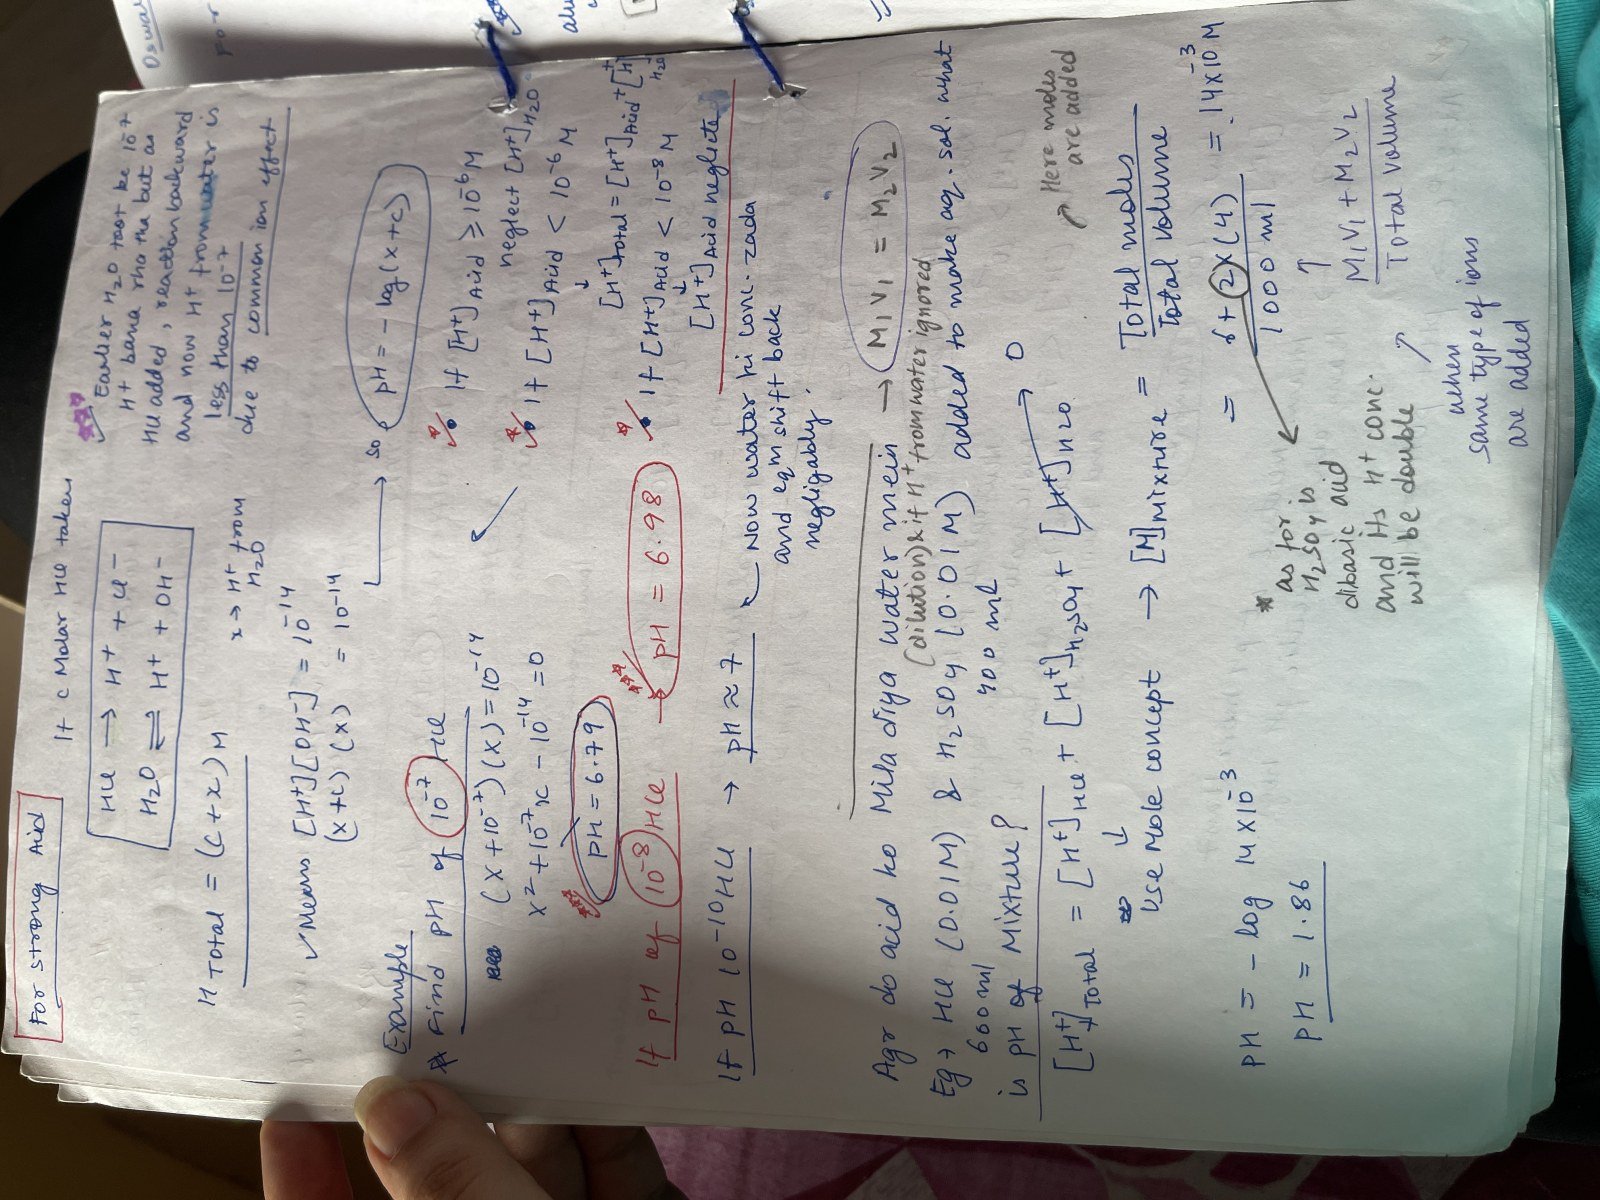 For strong Acid
If C Molar HCl taken
HCl → H⁺ + Cl⁻
H₂O ⇌ H⁺ + OH⁻
H Total = (C+x) M
x → H⁺ from
H₂O
✓ Means [H⁺][OH⁻] = 10⁻¹⁴
(x+c) (x) = 10⁻¹⁴
so pH = - log (x+c)
Earlier H₂O
H⁺ bana rha tha but as
HCl added, reaction backward
and now H⁺ from water is
less than 10⁻⁷
due to common ion effect
Example
* Find pH of 10⁻⁷ HCl
(x+10⁻⁷)(x)=10⁻¹⁴
x²+10⁻⁷x-10⁻¹⁴=0
pH = 6.79
• If [H⁺]Acid ≥ 10⁻⁶M
neglect [H⁺]H₂O.
• If [H⁺]Acid < 10⁻⁶ M
↓
[H⁺]Total = [H⁺]Acid + [H⁺]H₂O
• If [H⁺]Acid < 10⁻⁸ M
↓
[H⁺]Acid neglect
If pH of 10⁻⁸ HCl → pH = 6.98
If pH 10⁻¹⁰ HCl → pH ≈ 7
Now water ki conc. zada
and eqm shift back
negligably.
Agr do acid ko Mila diya water mein → M₁V₁ = M₂V₂
(dilution) & if H⁺ from water ignored
Eg → HCl (0.01M) & H₂SO₄ (0.01M) added to make aq. sol. what
600ml 400 ml
is pH of Mixture?
[H⁺]Total = [H⁺]HCl + [H⁺]H₂SO₄ + [H⁺]H₂O 0
↓
Use Mole concept → [M]Mixture = Total moles
Total volume
Here moles
are added
= 6 + 2×(4) = 14×10⁻³ M
1000 ml
↑
M₁V₁ + M₂V₂
Total volume
when
same type of ions
are added
* as for
H₂SO₄ is
dibasic acid
and its H⁺ conc.
will be double
pH = - log 14×10⁻³
pH = 1.86